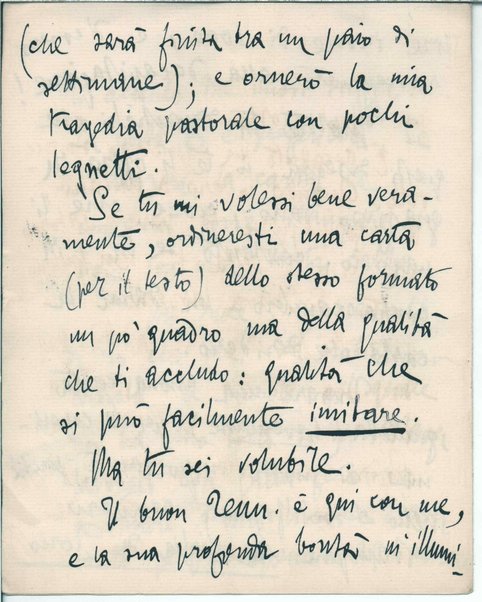 (che sarà finita tra un paio di
settimane); e ornerò la mia
tragedia pastorale con pochi
legnetti.
Se tu mi volessi bene vera-
mente, ordineresti una carta
(per il testo) dello stesso formato
un po' quadro ma della qualità
che ti accludo: qualità che
si può facilmente imitare.
Ma tu sei volubile.
Il buon Tenn. è qui con me,
e la sua profonda bontà m'illumi-